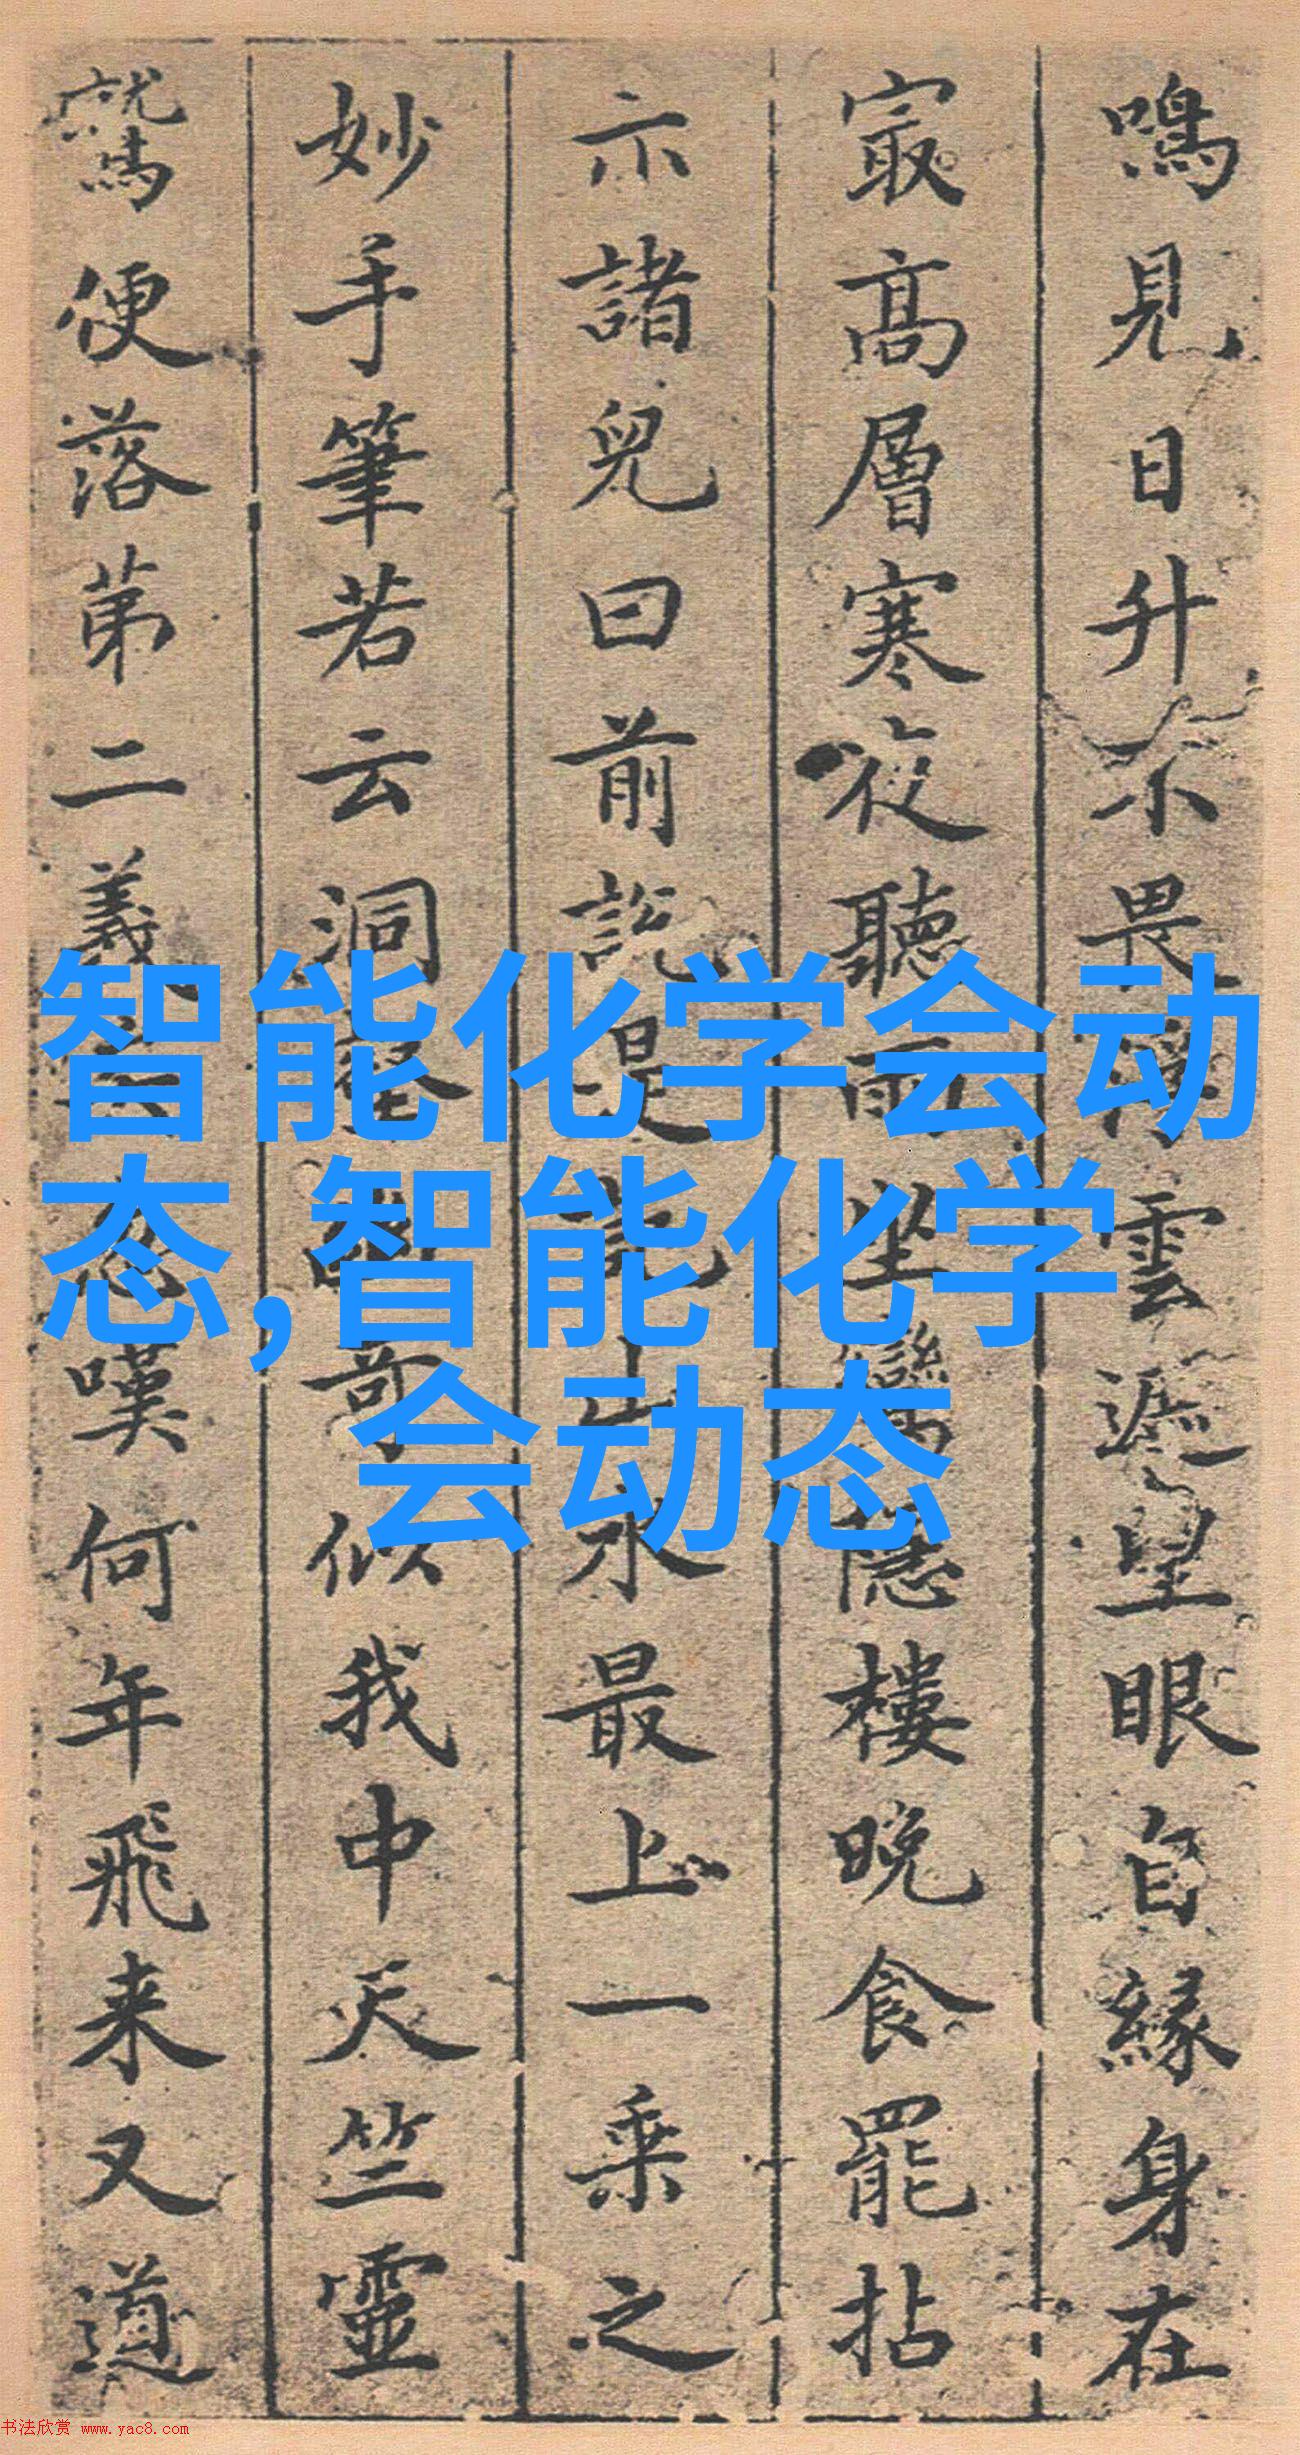 鳴見日升不畏浮雲遮望眼自緣身在
㝡高層寒夜聽雨坐隱樓晚食罷拈
示諸兒曰前說是山水最上一乘之
妙手筆若云洞壑奇似我中天竺靈
鷲便落苐二義嘆何年飛来又道
智能化学会动
态,智能化学
会动态
书法欣赏 www.yac8.com